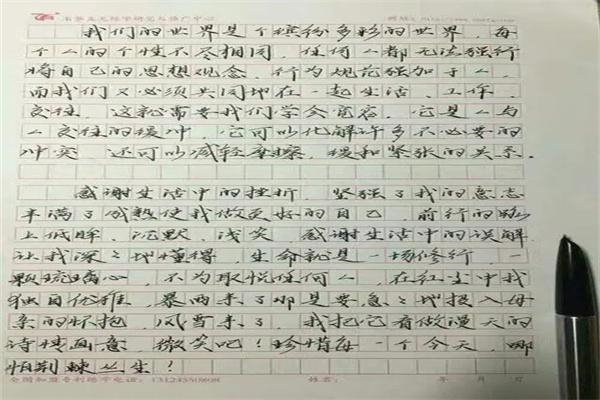 我们的世界是个缤纷多彩的世界，每
个人的个性不尽相同，任何人都无法强行
将自己的思想观念，行为规范强加于人，
而我们又必须共同地在一起生活、工作，
交往，这就需要我们学会宽容，它是人与
人交往的缓冲，它可以化解许多不必要的
冲突，还可以减轻摩擦，缓和紧张的关系.
感谢生活中的挫折，坚强了我的意志
丰满了成熟使我做更好的自己，前行的路
上低眸，沉默，浅笑，感谢生活中的误解
让我深深地懂得，生命就是一场修行，一
颗琉璃心，不为取悦任何人，在红尘中我
独自优雅，暴雨来了那是要急急地投入母
亲的怀抱，风雪来了，我把它看做漫天的
诗情画意，微笑吧！珍惜每一个今天，哪
怕荆棘丛生？
全国加盟专利练字电话： 姓名： 年 月 日